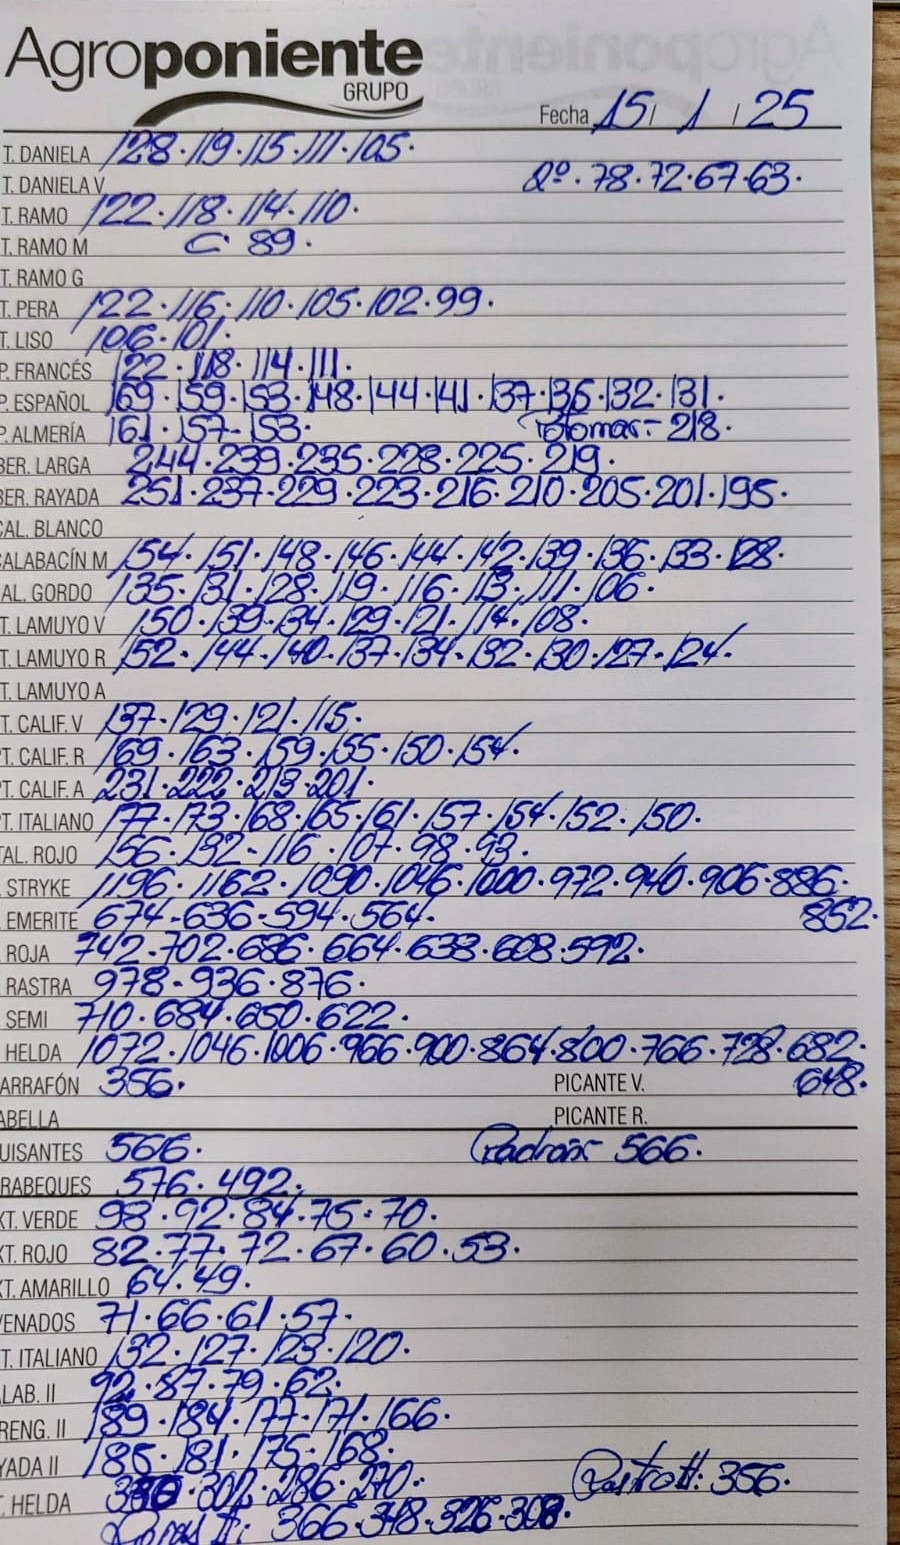 Agroponiente
GRUPO
Fecha 15/ 1 / 25
T. DANIELA 128·119·115·111·105·
T. DANELA V 2º·78·72·67·63·
T. RAMO 122·118·114·110·
T. RAMO M C 89·
T. RAMO G
T. PERA 122·116·110·105·102·99·
T. LISO 106·101·
P. FRANCÉS 122·118·114·111·
P. ESPAÑOL 169·159·153·148·144·141·137·136·132·131·
P. ALMERÍA 161·157-153· 218·
BER. LARGA 244·239·235·228·225·219·
BER. RAYADA 251·237·229·223·216·210·205·201·195·
CAL. BLANCO
ALABACÍN M 154·151·148·146·144·142·139·136·133·128·
AL. GORDO 135·131·128·119·116·113·111·106·
T. LAMUYO V 150·139·134·129·121·114·108·
T. LAMUYO R 152·144·140·137·134·132·130·127·124·
T. LAMUYO A
T. CALIF. V 137·129·121·115·
T. CALIF. R 169·163·159·155·150·154·
T. CALIF. A 231·222·213·201·
T. ITALIANO 177·173·168·165·161·157·154·152·150·
TAL. ROJO 156·132-116·107·98·93·
STRYKE 1196·1162·1090·1046·1000·972·940·906·886·
EMERITE 674-636-594·564· 852·
ROJA 742·702·686·664·638·608·592·
RASTRA 978-936·876·
SEMI 710·684·650·622·
HELDA 1072·1046·1006·966·900·864·800·766·728·682·
ARRAFÓN 356· PICANTE V. 648·
ABELLA PICANTE R.
UISANTES 566· Padrón 566·
RABEQUES 576·492·
XT. VERDE 98·92·84·75·70·
XT. ROJO 82·77·72·67·60·53·
XT. AMARILLO 64·49·
VENADOS 71·66·61·57·
T. ITALIANO 132·127·123·120·
LAB. II 92·87·79·62·
RENG. II 189·184·177·171·166·
YADA II 185·181·175·168·
T. HELDA 330·302·286·270· 356·
366·348·326·308·